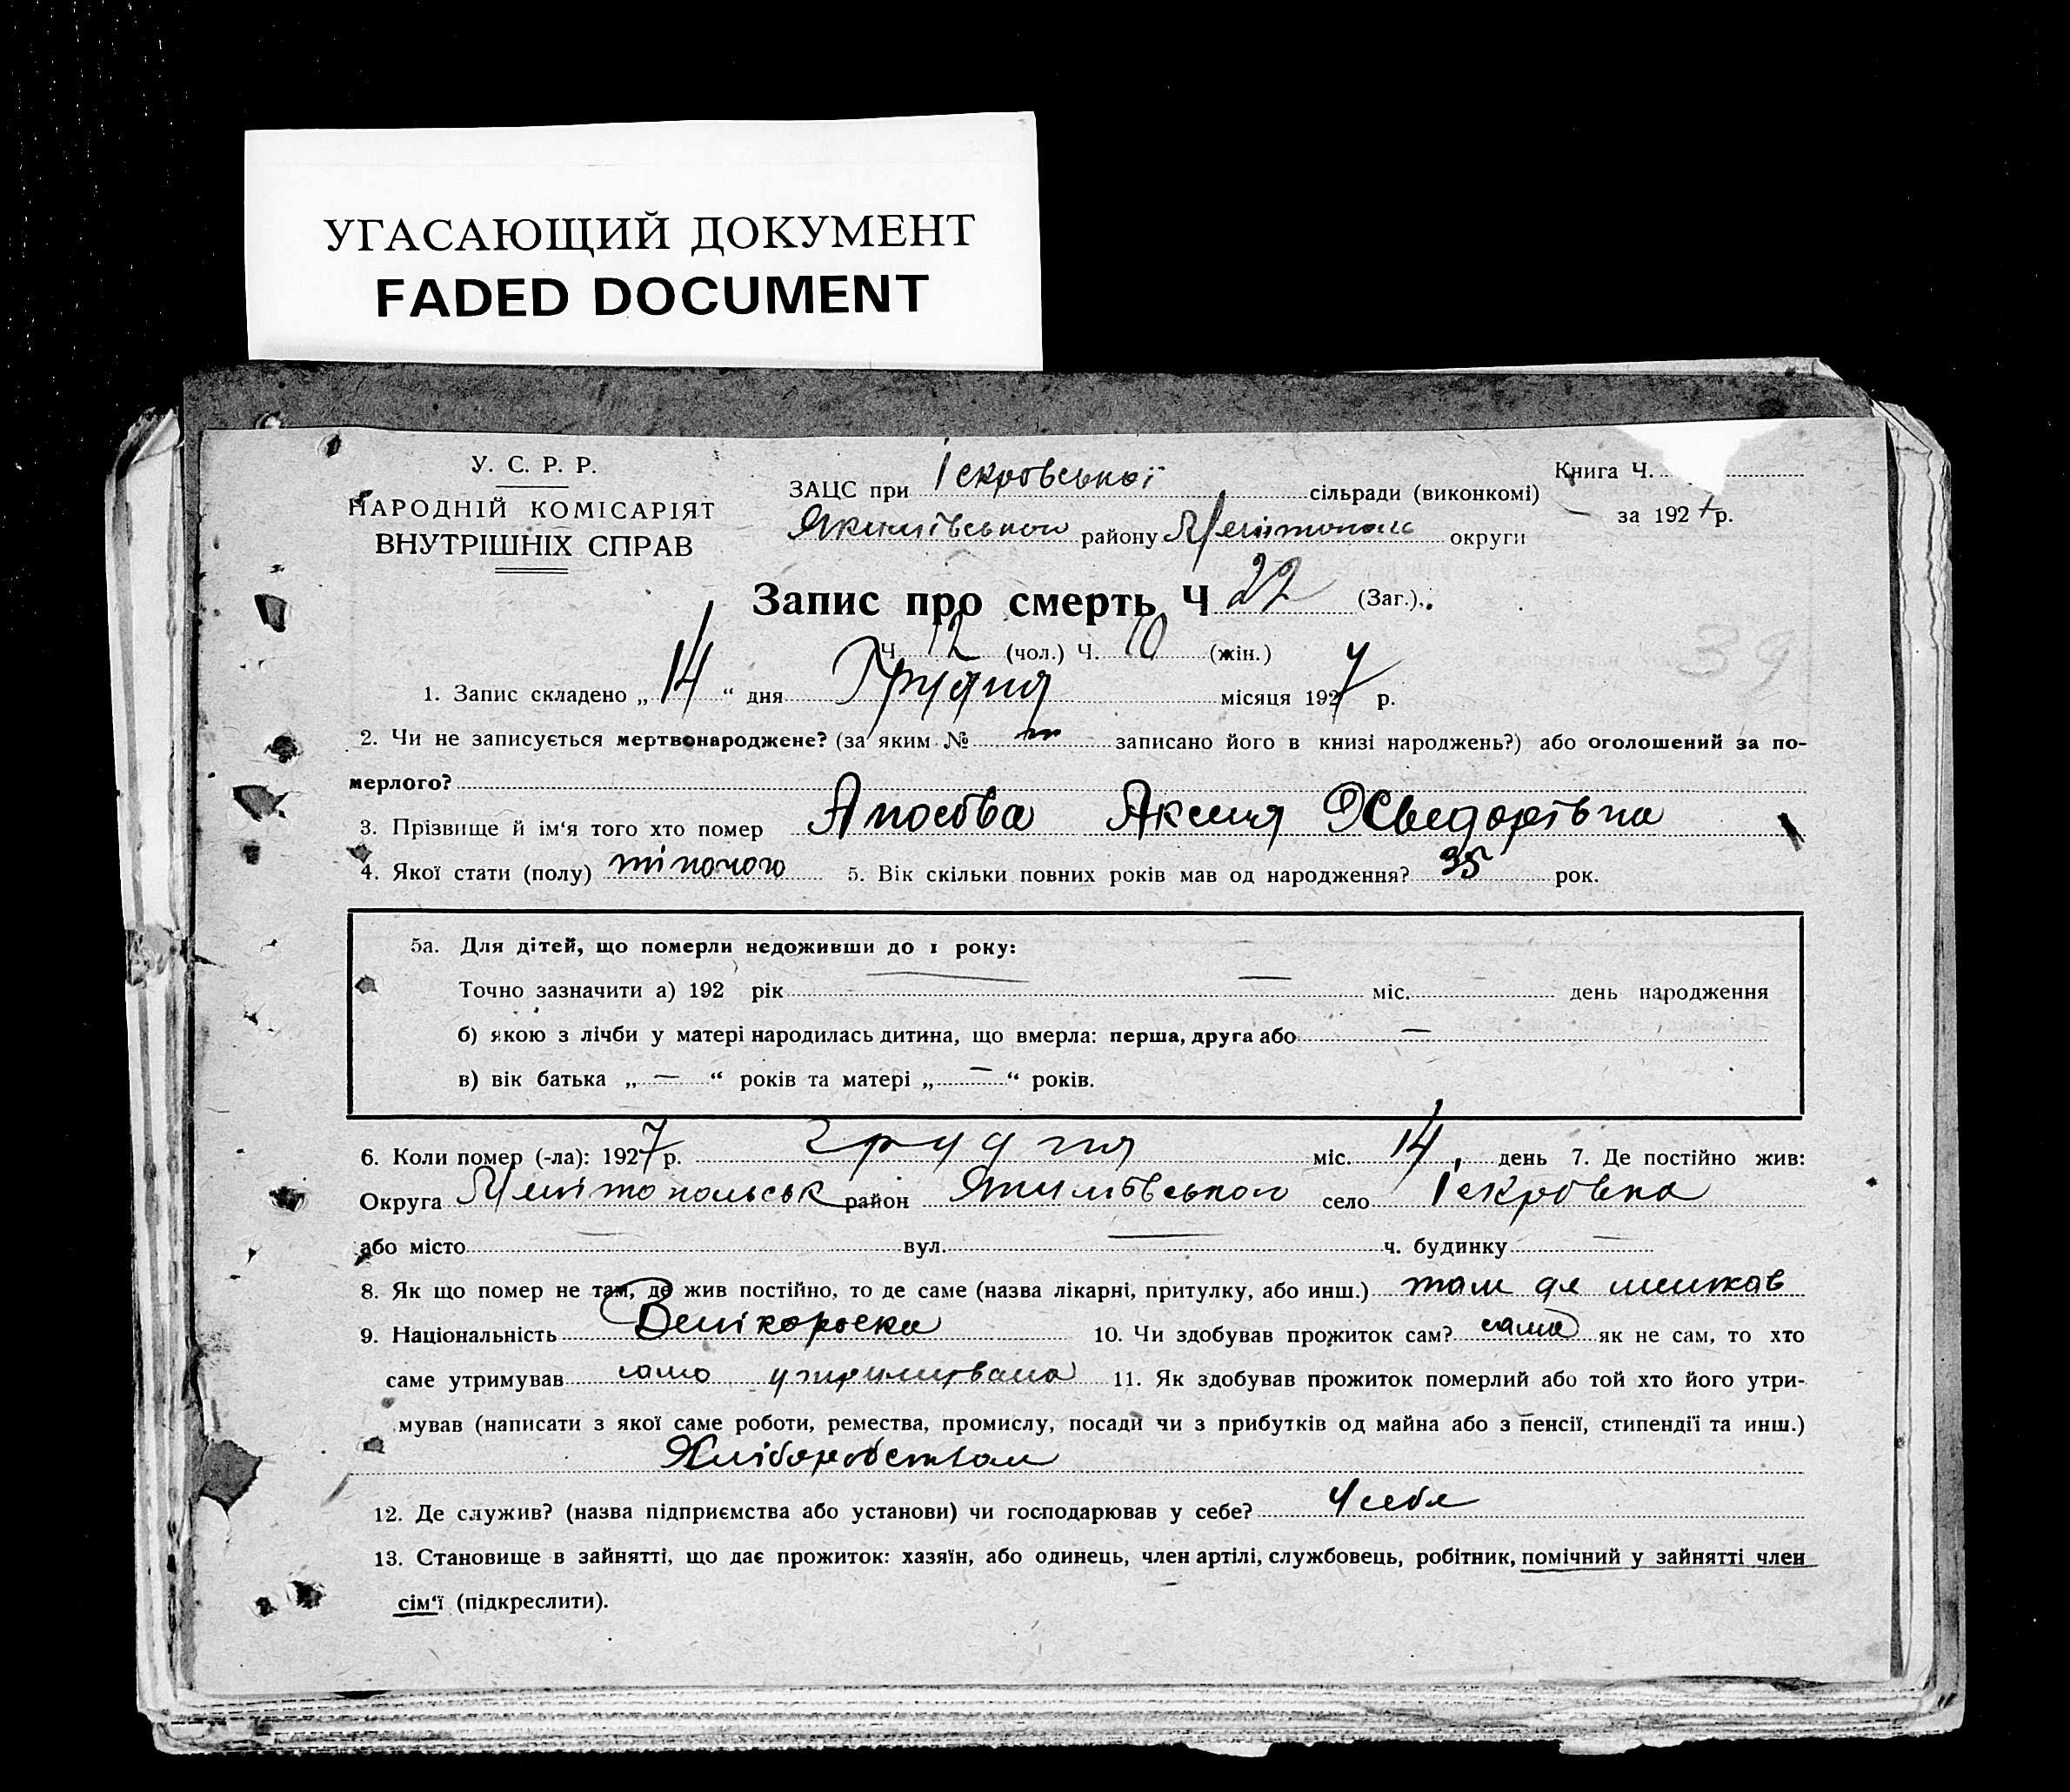 УГАСАЮЩИЙ ДОКУМЕНТ
FADED DOCUMENT
У. С. Р. Р.
НАРОДНІЙ КОМІСАРІЯТ
ВНУТРІШНІХ СПРАВ
ЗАЦС при Іскровської сільради (виконкомі)
Якимівського району Мелітополь округи
Книга Ч.
за 1927 р.
Запис про смерть Ч 22 (Заг.).
Ч. 12 (чол.) Ч. 10 (жін.)
39
1. Запис складено „ 14 “ дня Грудня місяця 1927 р.
2. Чи не записується мертвонароджене? (за яким № записано його в книзі народжень?) або оголошений за по-
мерлого?
3. Прізвище й ім'я того хто помер Аносова Аксенья Хведорівна
4. Якої стати (полу) жіночого 5. Вік скільки повних років мав од народження? 35 рок.
5а. Для дітей, що померли недоживши до 1 року:
Точно зазначити а) 192 рік — — міс. день народження
б) якою з лічби у матері народилась дитина, що вмерла: перша, друга або —
в) вік батька „ — “ років та матері „ — “ років.
6. Коли помер (-ла): 1927 р. грудня міс. 14 день 7. Де постійно жив:
Округа Мелітопольськ район Якимівського село Іскровка
або місто — вул. — ч. будинку —
8. Як що помер не там, де жив постійно, то де саме (назва лікарні, притулку, або инш.) там де
9. Національність Велікороска 10. Чи здобував прожиток сам? сама як не сам, то хто
саме утримував само утримувала 11. Як здобував прожиток померлий або той хто його утри-
мував (написати з якої саме роботи, ремества, промислу, посади чи з прибутків од майна або з пенсії, стипендії та инш.)
Хліборобством
12. Де служив? (назва підприємства або установи) чи господарював у себе? У себе
13. Становище в зайнятті, що дає прожиток: хазяїн, або одинець, член артілі, службовець, робітник, помічний у зайнятті член
сім'ї (підкреслити).